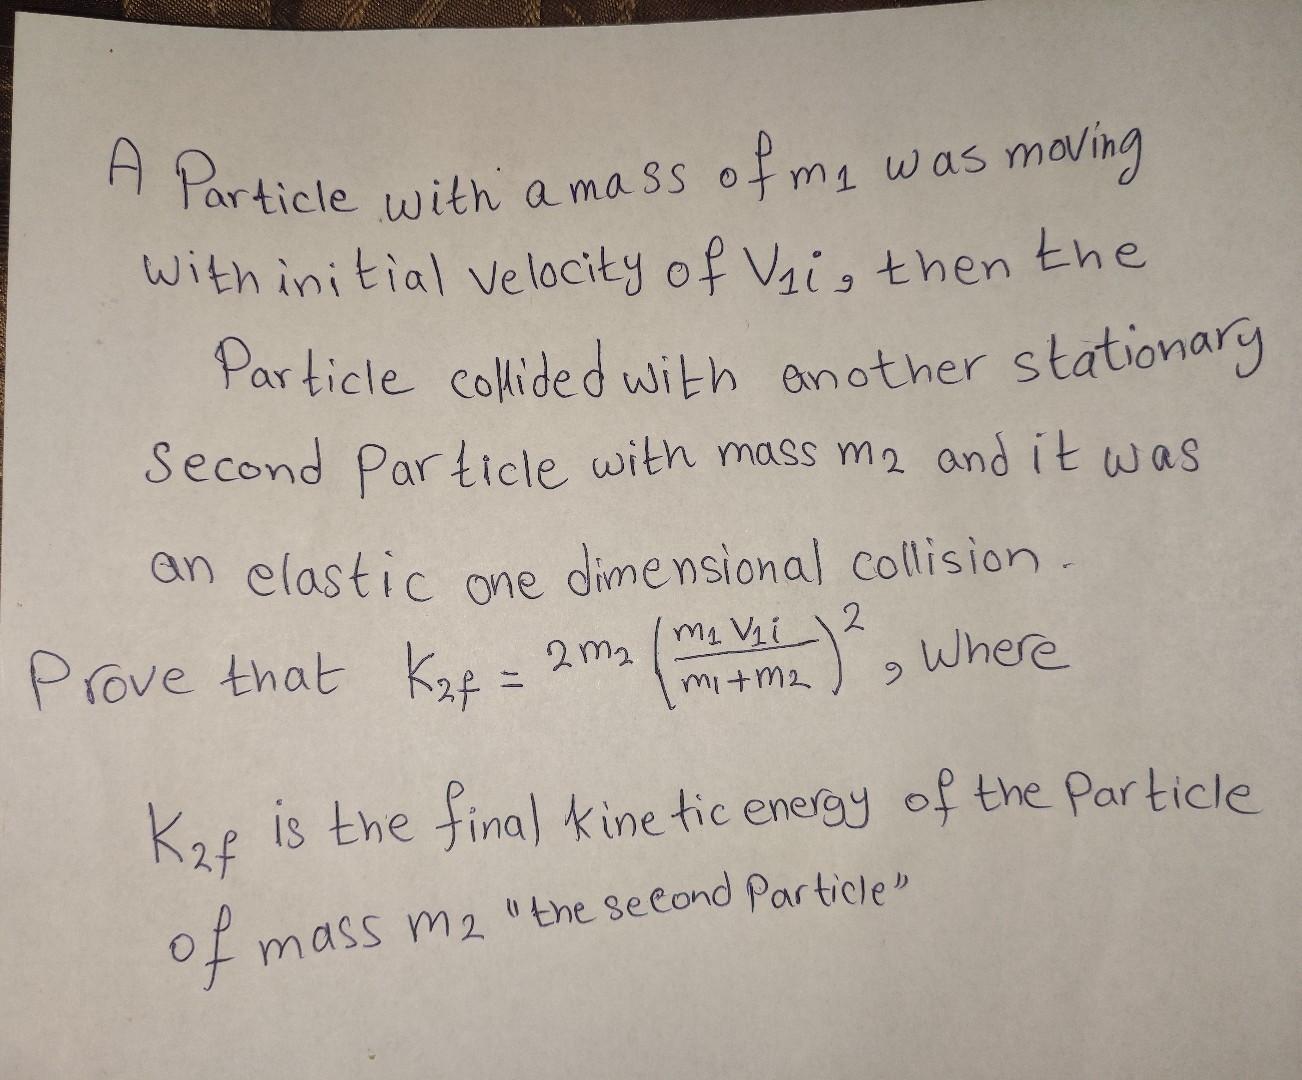 A Particle with a mass of m1 was moving
with initial velocity of V1i, then the
Particle collided with another stationary
second Particle with mass m2 and it was
an elastic one dimensional collision.
Prove that K2f = 2m2 (m1 V1i / m1+m2)², where
K2f is the final kinetic energy of the Particle
of mass m2 "the second Particle"